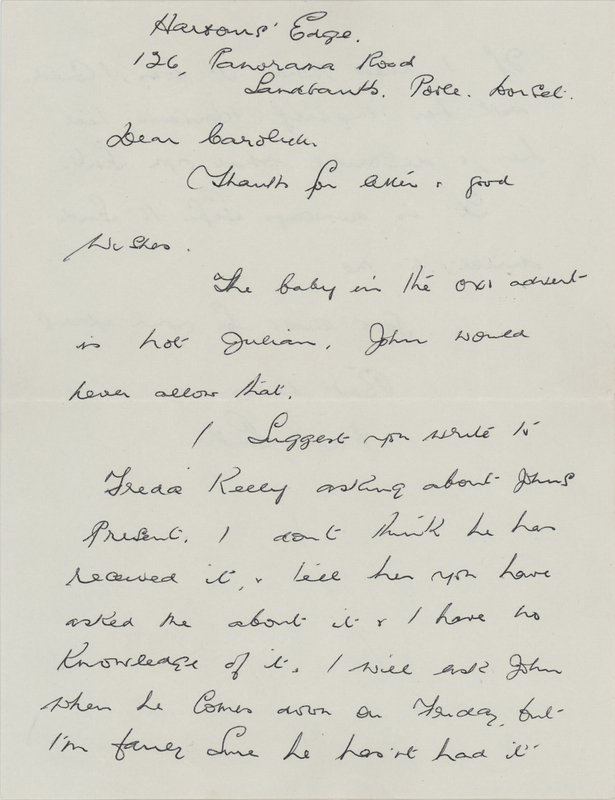 Harbour's Edge.
126, Panorama Road
Sandbanks. Poole. Dorset.
Dear Caroline.
Thanks for letter & good
wishes.
The baby in the oxo advert
is not Julian, John would
never allow that.
I suggest you write to
Freda Kelly asking about Johns
Present. I dont think he has
received it, & tell her you have
asked me about it & I have no
knowledge of it. I will ask John
when he comes down on Friday, but
I'm fairly sure he hasn't had it